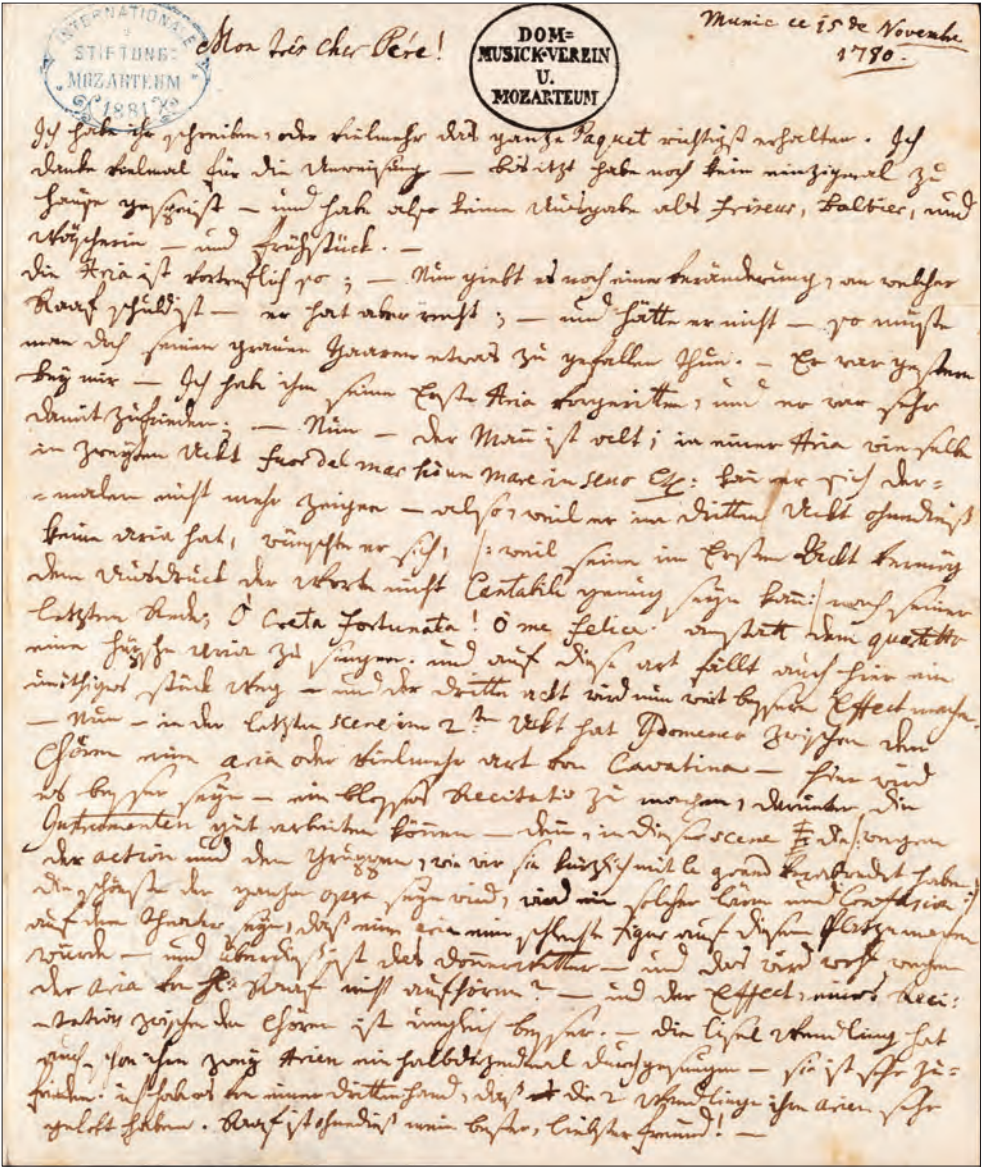 INTERNATIONALE
STIFTUNG
MOZARTEUM
1881
DOM=
MUSICK-VEREIN
U.
MOZARTEUM
Munic ce 15 de Novembre
1780.
Mon très cher Pére!
Ich habe ihr schreiben, oder vielmehr das ganze Paquet richtigst erhalten. Ich
danke vielmal für die Anweisung — bis itzt habe noch kein einzigmal zu
hause gespeist — und habe also keine Ausgabe als friseur, balbier, und
Wäscherin — und frühstück. —
die Aria ist vortreflich so; — Nun giebt es noch eine veränderung, an welcher
Raaff schuld ist — er hat aber recht; — und hätte er nicht — so müste
man doch seinen grauen Haaren etwas zu gefallen thun. — Er war gestern
bey mir — Ich habe ihm seine Erste Aria vorgeritten, und er war sehr
damit zufrieden; — Nun — der Mann ist alt; in einer Aria wie selbe
im zweyten Ackt fuor del mar hò un mare in seno Etc: kann er sich der=
=malen nicht mehr zeigen — also, weil er im dritten Ackt ohnediess
keine aria hat, wünschte er sich, |: weil seine im Ersten Ackt vermög
dem ausdruck der Worte nicht Cantabile genug seyn kann :| nach seiner
letzten Rede; O Creta fortunata! O me felice anstatt dem quartetto
eine hüpsche aria zu singen. und auf diese art fällt auch hier ein
unöthiges stück weg — und der dritte ackt wird nun weit bessern Effect machen.
— Nun — in der letzten scene im 2:ten Ackt hat Idomeneo zwischen den
Chören eine aria oder vielmehr art von Cavatina — hier wird
es besser seyn — ein blosses Recitativ zu machen, darunter die
Instrumenten gut arbeiten können — denn, in dieser scene die |: wegen
der action und den Gruppen, wie wir sie kürzlich mit le grand verabredet haben :|
die schönste der ganzen opera seyn wird, wird ein solcher lärm und Confusion
auf dem theater seyn, daß eine aria eine schlechte figur auf diesem Platze machen
würde — und überdiess ist das donnerwetter — und das wird wohl wegen
der aria von H: Raaff nicht aufhören? — und der Effect, eines Reci:
=tativs zwischen den Chören ist ungleich besser. — die lisel Wendling hat
auch schon ihre zwey Arien ein halbdutzendmal durchgesungen — sie ist sehr zu=
frieden. ich hab es von einer dritten hand, daß die 2 Wendlinge ihre arien sehr
gelobt haben. Raaff ist ohnediess mein bester, liebster freund! —